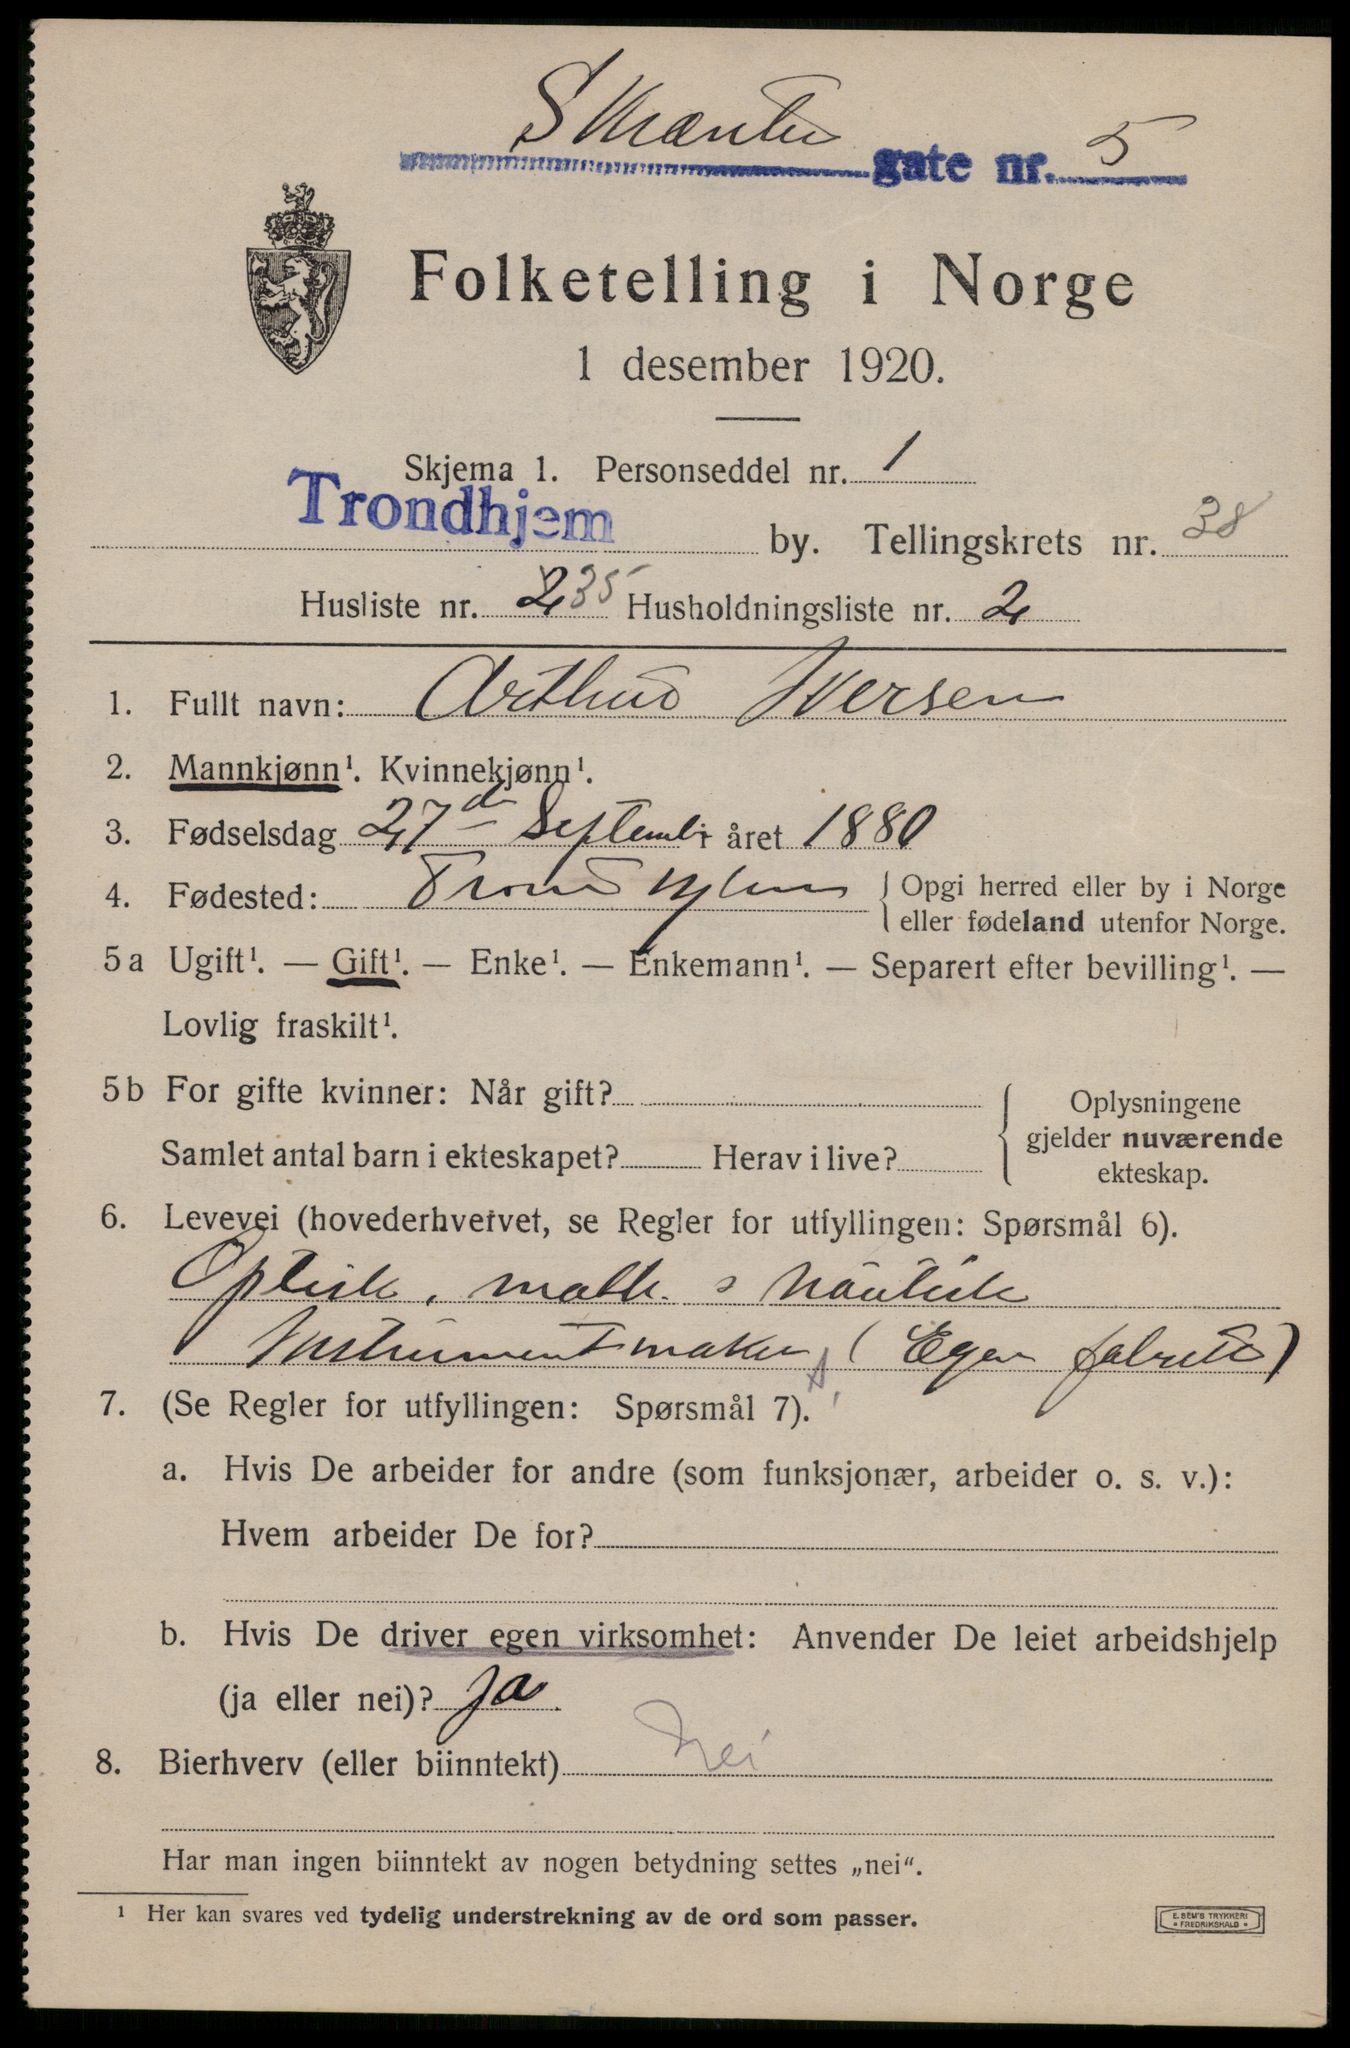 gate nr. 5
Folketelling i Norge
1 desember 1920.
Skjema 1. Personseddel nr. 1
Trondhjem by. Tellingskrets nr. 38
Husliste nr. 2 35 Husholdningsliste nr. 2
1. Fullt navn: Arthur Iversen
2. Mannkjønn¹. Kvinnekjønn¹.
3. Fødselsdag 27de Septembr året 1880
4. Fødested: Trondhjem { Opgi herred eller by i Norge
eller fødeland utenfor Norge.
5a Ugift¹. — Gift¹. — Enke¹. — Enkemann¹. — Separert efter bevilling¹. —
Lovlig fraskilt¹.
5b For gifte kvinner: Når gift?
Samlet antal barn i ekteskapet? Herav i live?
Oplysningene
gjelder nuværende
ekteskap.
6. Levevei (hovederhvervet, se Regler for utfyllingen: Spørsmål 6).
Optisk, math. & Nautisk
Instrumentmaker (Egen fabrik)
7. (Se Regler for utfyllingen: Spørsmål 7).
a. Hvis De arbeider for andre (som funksjonær, arbeider o. s. v.):
Hvem arbeider De for?
b. Hvis De driver egen virksomhet: Anvender De leiet arbeidshjelp
(ja eller nei)? Ja
8. Bierhverv (eller biinntekt) Nei
Har man ingen biinntekt av nogen betydning settes „nei“.
¹ Her kan svares ved tydelig understrekning av de ord som passer.
E. SEM'S TRYKKERI
FREDRIKSHALD